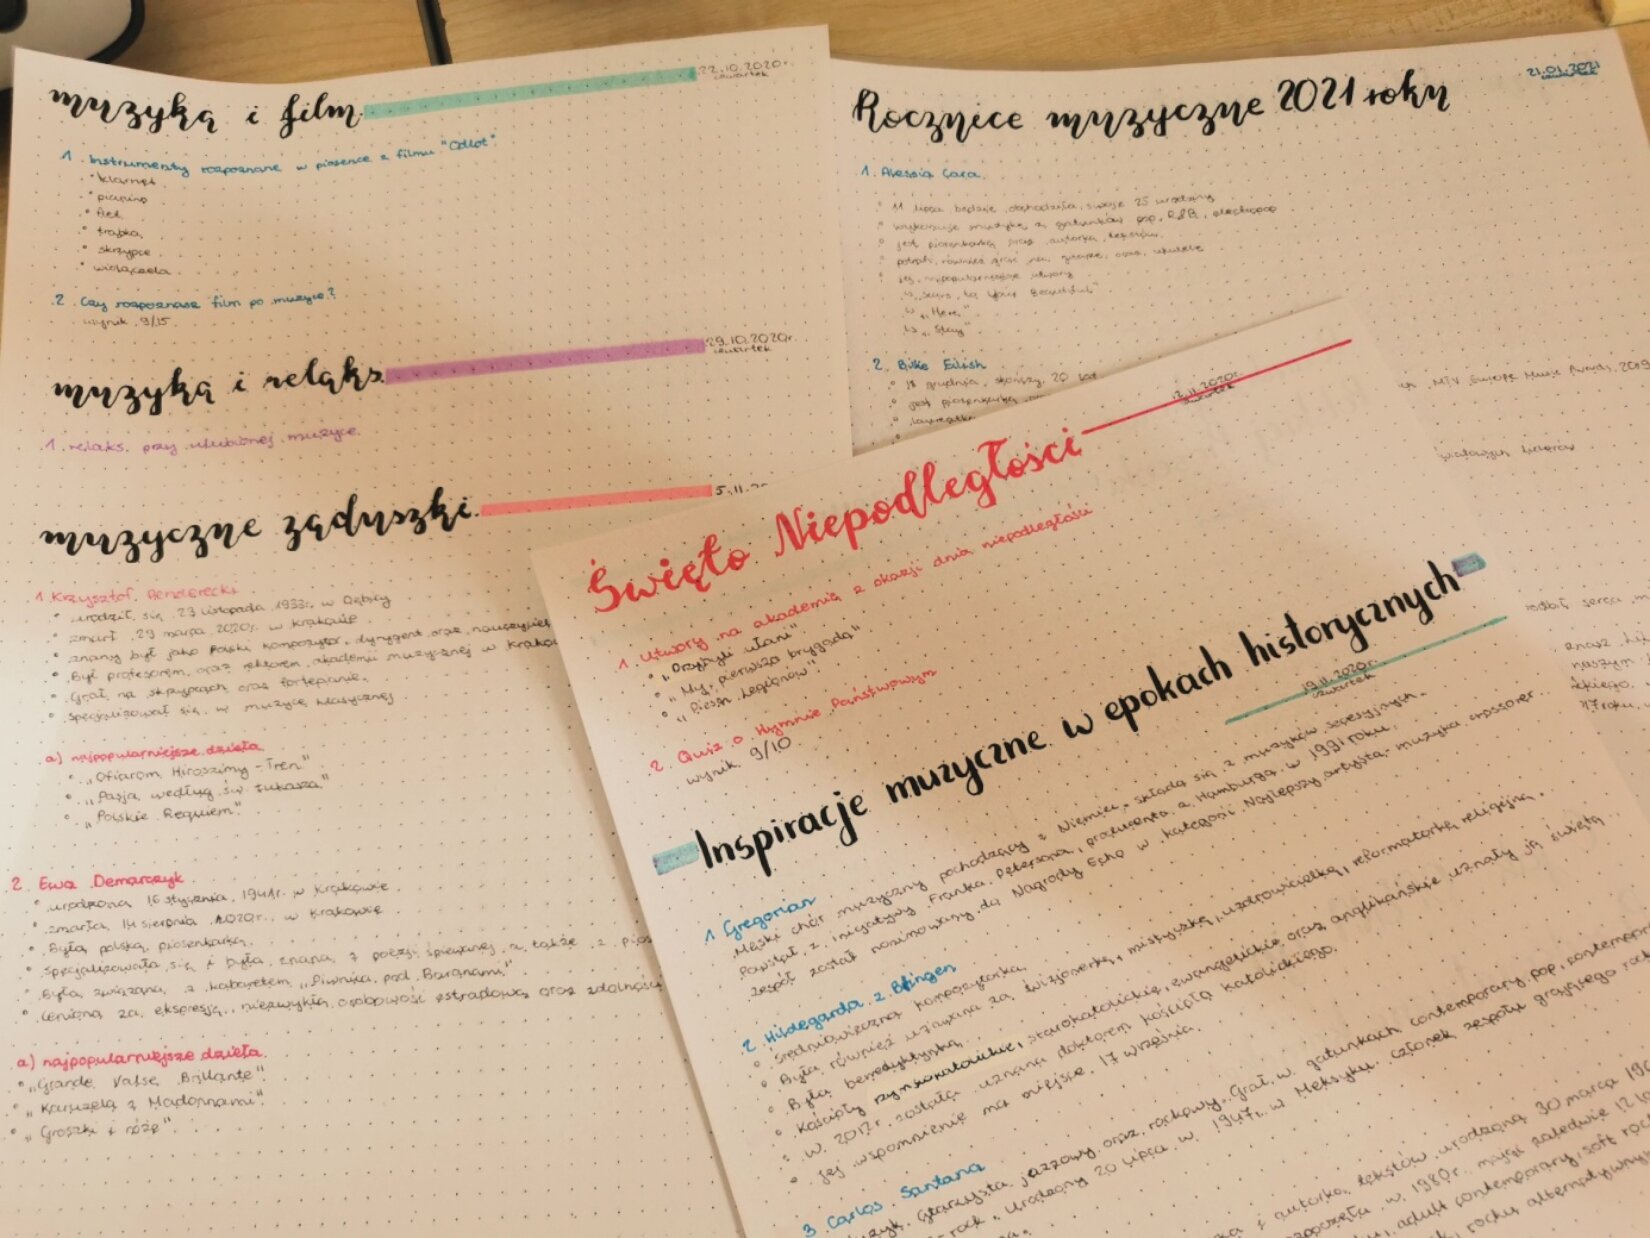 muzyka i film
22.10.2020r.
czwartek
1. Instrumenty rozpoznane w piosence z filmu "Odlot"
• klarnet
• pianino
• flet
• trąbka
• skrzypce
• wiolączela
2. Czy rozpoznasz film po muzyce?
wynik 9/15
muzyka i relaks
29.10.2020r.
czwartek
1. relaks przy ulubionej muzyce
muzyczne zaduszki
5.11.20
1. Krzysztof Penderecki
• urodził się 23 listopada 1933r. w Dębicy
• zmarł 29 marca 2020r. w Krakowie
• znany był jako Polski kompozytor, dyrygent oraz nauczyciel
• Był profesorem oraz rektorem akademii muzycznej w Krakow
• Grał na skrzypcach oraz fortepianie
• Specjalizował się w muzyce klasycznej
a) najpopularniejsze dzieła
• „Ofiarom Hiroszimy - Tren"
• „Pasja według św. Łukasza"
• „Polskie Requiem"
2. Ewa Demarczyk
• urodzona 16 stycznia 1941r. w Krakowie
• zmarła 14 sierpnia 2020r. w Krakowie
• Była polską piosenkarką
• Specjalizowała się i była znana z poezji śpiewanej a także z pios
• Była związana z kabaretem „Piwnica pod Baranami"
• Ceniona za ekspresją, niezwykłą osobowość estradową oraz zdolności
a) najpopularniejsze dzieła
• „Grande Valse Brillante"
• „Karuzela z Madonnami"
• „Groszki i róże"
Rocznice muzyczne 2021 roku
21.01.2021
czwartek
1. Alessia Cara
• 11 lipca będzie obchodziła swoje 25 urodziny
• wykonuje muzykę z gatunków pop, R&B, electropop
• jest piosenkarką oraz autorką tekstów
• potrafi również grać na gitarze oraz ukulele
• jej najpopularniejsze utwory
↳ „Scars to Your Beautiful"
↳ „Here"
↳ „Stay"
2. Billie Eilish
• 18 grudnia skończy 20 lat
• jest piosenkarką
• laureatka
MTV Europe Music Awards 2019
Święto Niepodległości
12.11.2020r.
czwartek
1. Utwory na akademię z okazji dnia niepodległości
• „Przybyli ułani"
• „My, pierwsza brygada"
• „Pieśń Legionów"
2. Quiz o Hymnie Państwowym
wynik 9/10
Inspiracje muzyczne w epokach historycznych
19.11.2020r.
czwartek
1 Gregorian
Męski chór muzyczny pochodzący z Niemiec, składa się z muzyków sesyjnych.
Powstał z inicjatywy Franka Petersona, producenta z Hamburga w 1991 roku.
Zespół został nominowany do Nagrody Echo w kategorii Najlepszy artysta - muzyka crossover
2 Hildegarda z Bingen
• średniowieczna kompozytorka
• Była również uznana za wizjonerkę, mistyczką, uzdrowicielką, reformatorką religijną.
• Była benedyktynką
• Kościoły rzymskokatolickie, starokatolickie, ewangelickie oraz anglikańskie uznały ją świętą
• w 2012r. została uznana doktorem kościoła katolickiego.
• jej wspomnienie ma miejsce 17 września.
3 Carlos Santana
muzyk, gitarzysta jazzowy oraz rockowy. Grał w gatunkach contemporary pop, contempora
rock. Urodzony 20 lipca w 1947r. w Meksyku. Członek zespołu grającego rock
i autorka tekstów urodzona 30 marca 19
rozpoczęła w 1980r. mając zaledwie 12 la
adult contemporary, soft roc
rocku alternatywnym